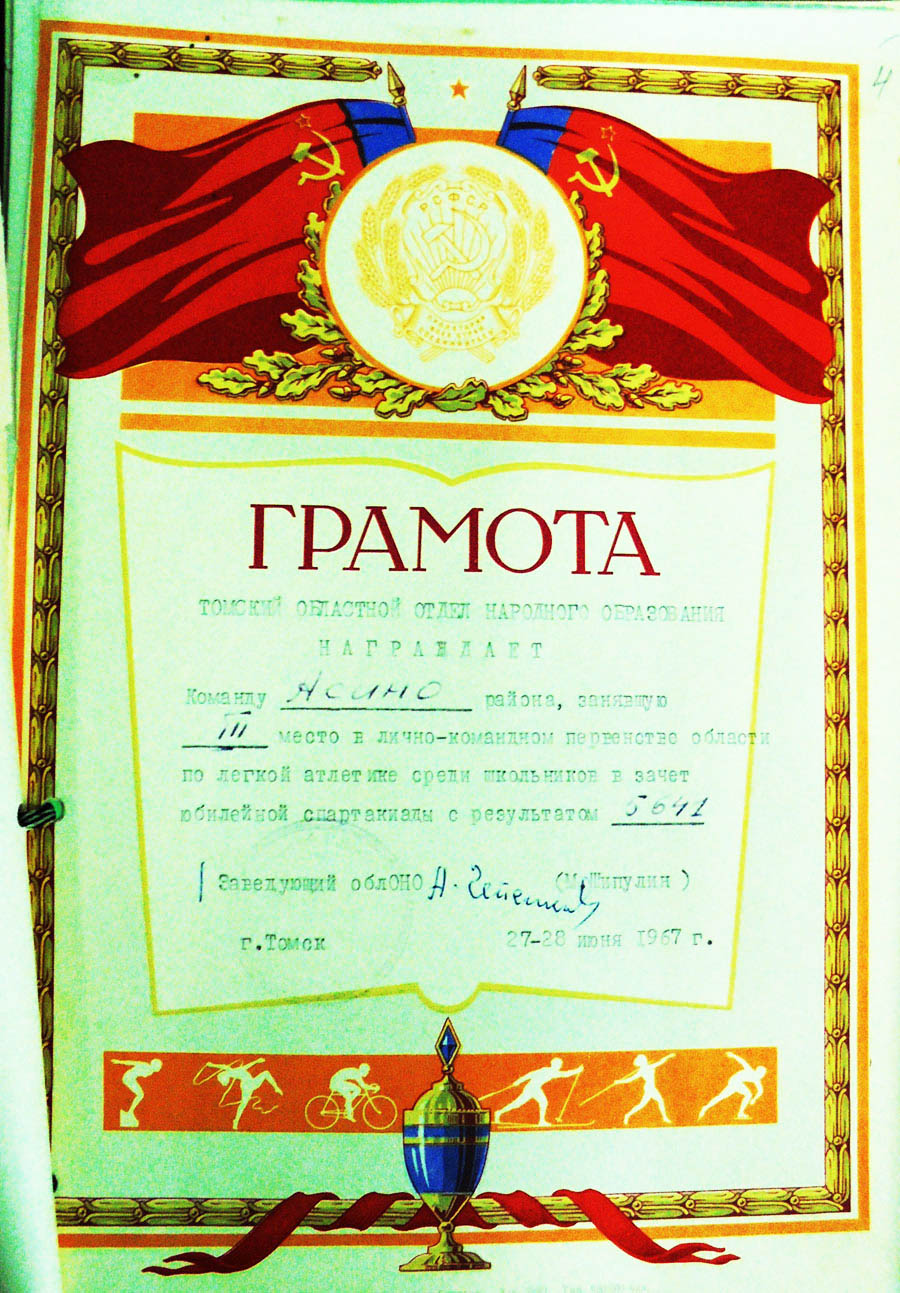 4
РСФСР
ГРАМОТА
ТОМСКИЙ ОБЛАСТНОЙ ОТДЕЛ НАРОДНОГО ОБРАЗОВАНИЯ
НАГРАЖДАЕТ
Команду Асино района, занявшую
III место в лично-командном первенстве области
по легкой атлетике среди школьников в зачет
юбилейной спартакиады с результатом 5641
Заведующий облОНО (М.Шипулин)
г.Томск 27-28 июня 1967 г.